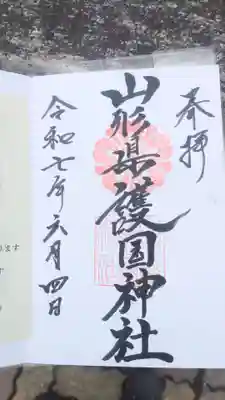 奉拝
山形県護国神社
令和七年六月四日
ます
す